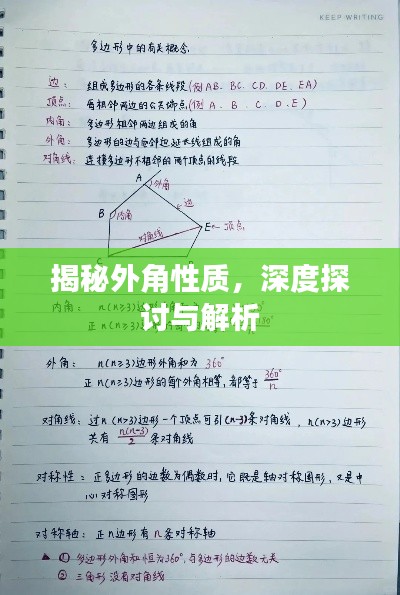 KEEP WRITING
多边形中的有关概念
边： 组成多边形的各条线段(例AB、BC、CD、DE、EA)
顶点： 每相邻两边的公共端点(例A、B、C、D、E)
内角： 多边形相邻两边组成的角
外角： 多边形的边与它邻边延长线组成的角
对角线： 连接多边形不相邻的两个顶点的线段
A
外角
边
B
内角
E
顶点
对角线
C
揭秘外角性质，深度探
讨与解析
内角：
外角： n(n≥3)边形外角和为 360°
正n(n≥3)边形的每个外角相等，都等于 360°/n
对角线： 过n(n>3)边形一个顶点可引(n-3)条对角线，n(n>3)边形
共有 n(n-3)/2 条对角线
对称性： 正多边形的边数为偶数时，它既是轴对称图形，又是中
心对称图形
对称轴： 正n边形有n条对称轴
▲ ① 多边形外角和恒为360°，与多边形的边数无关
② 三角形没有对角线